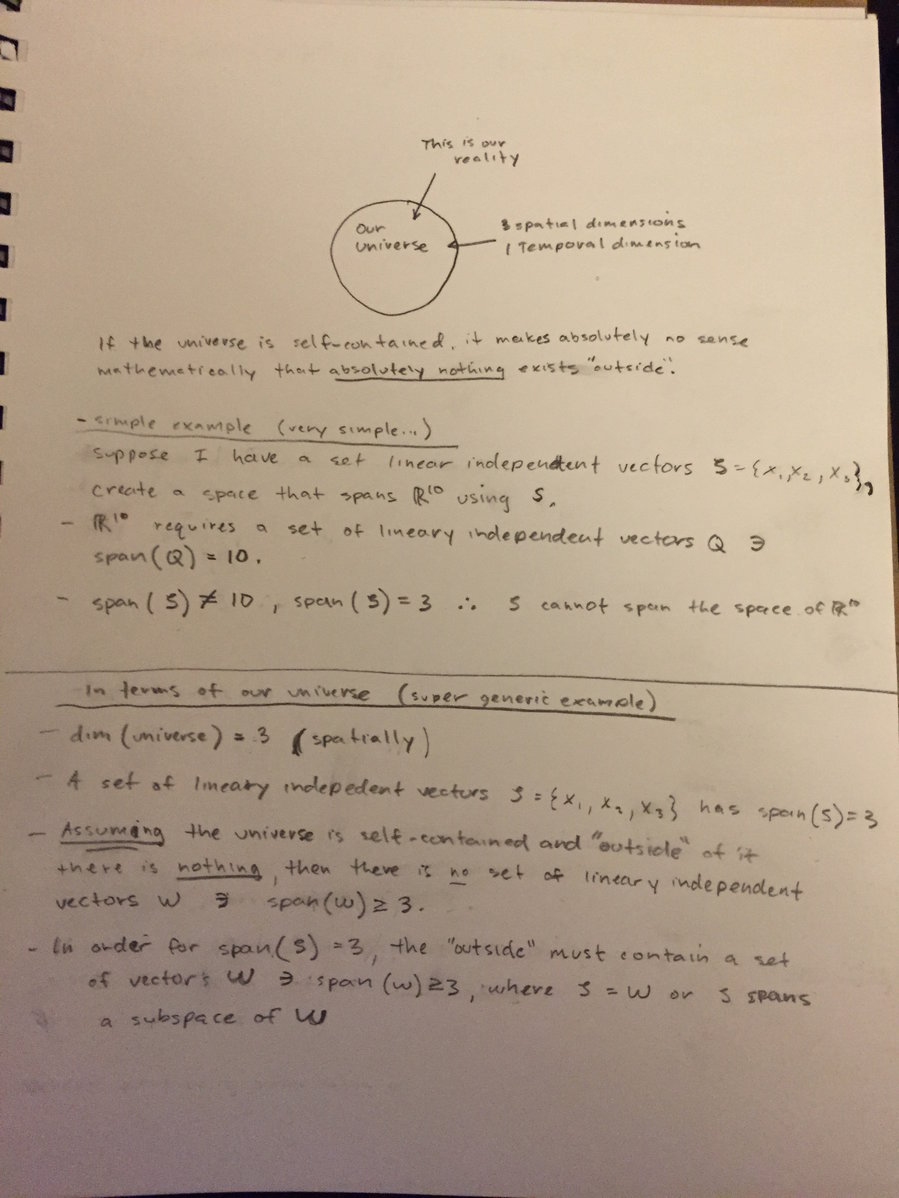 This is our
reality
Our
universe
3 spatial dimensions
1 Temporal dimension
If the universe is self-contained, it makes absolutely no sense
mathematically that absolutely nothing exists "outside".
- simple example (very simple...)
Suppose I have a set linear independent vectors S={x₁,x₂,x₃},
create a space that spans ℝ¹⁰ using S.
- ℝ¹⁰ requires a set of lineary independent vectors Q ∋
span(Q) = 10.
- span(S) ≠ 10, span(S) = 3 ∴ S cannot span the space of ℝ¹⁰
In terms of our universe (super generic example)
- dim(universe) = 3 (spatially)
- A set of lineary indepedent vectors S = {x₁, x₂, x₃} has span(S)=3
- Assuming the universe is self-contained and "outside" of it
there is nothing, then there is no set of lineary independent
vectors W ∋ span(W) ≥ 3.
- In order for span(S) = 3, the "outside" must contain a set
of vectors W ∋ span(W) ≥ 3, where S = W or S spans
a subspace of W